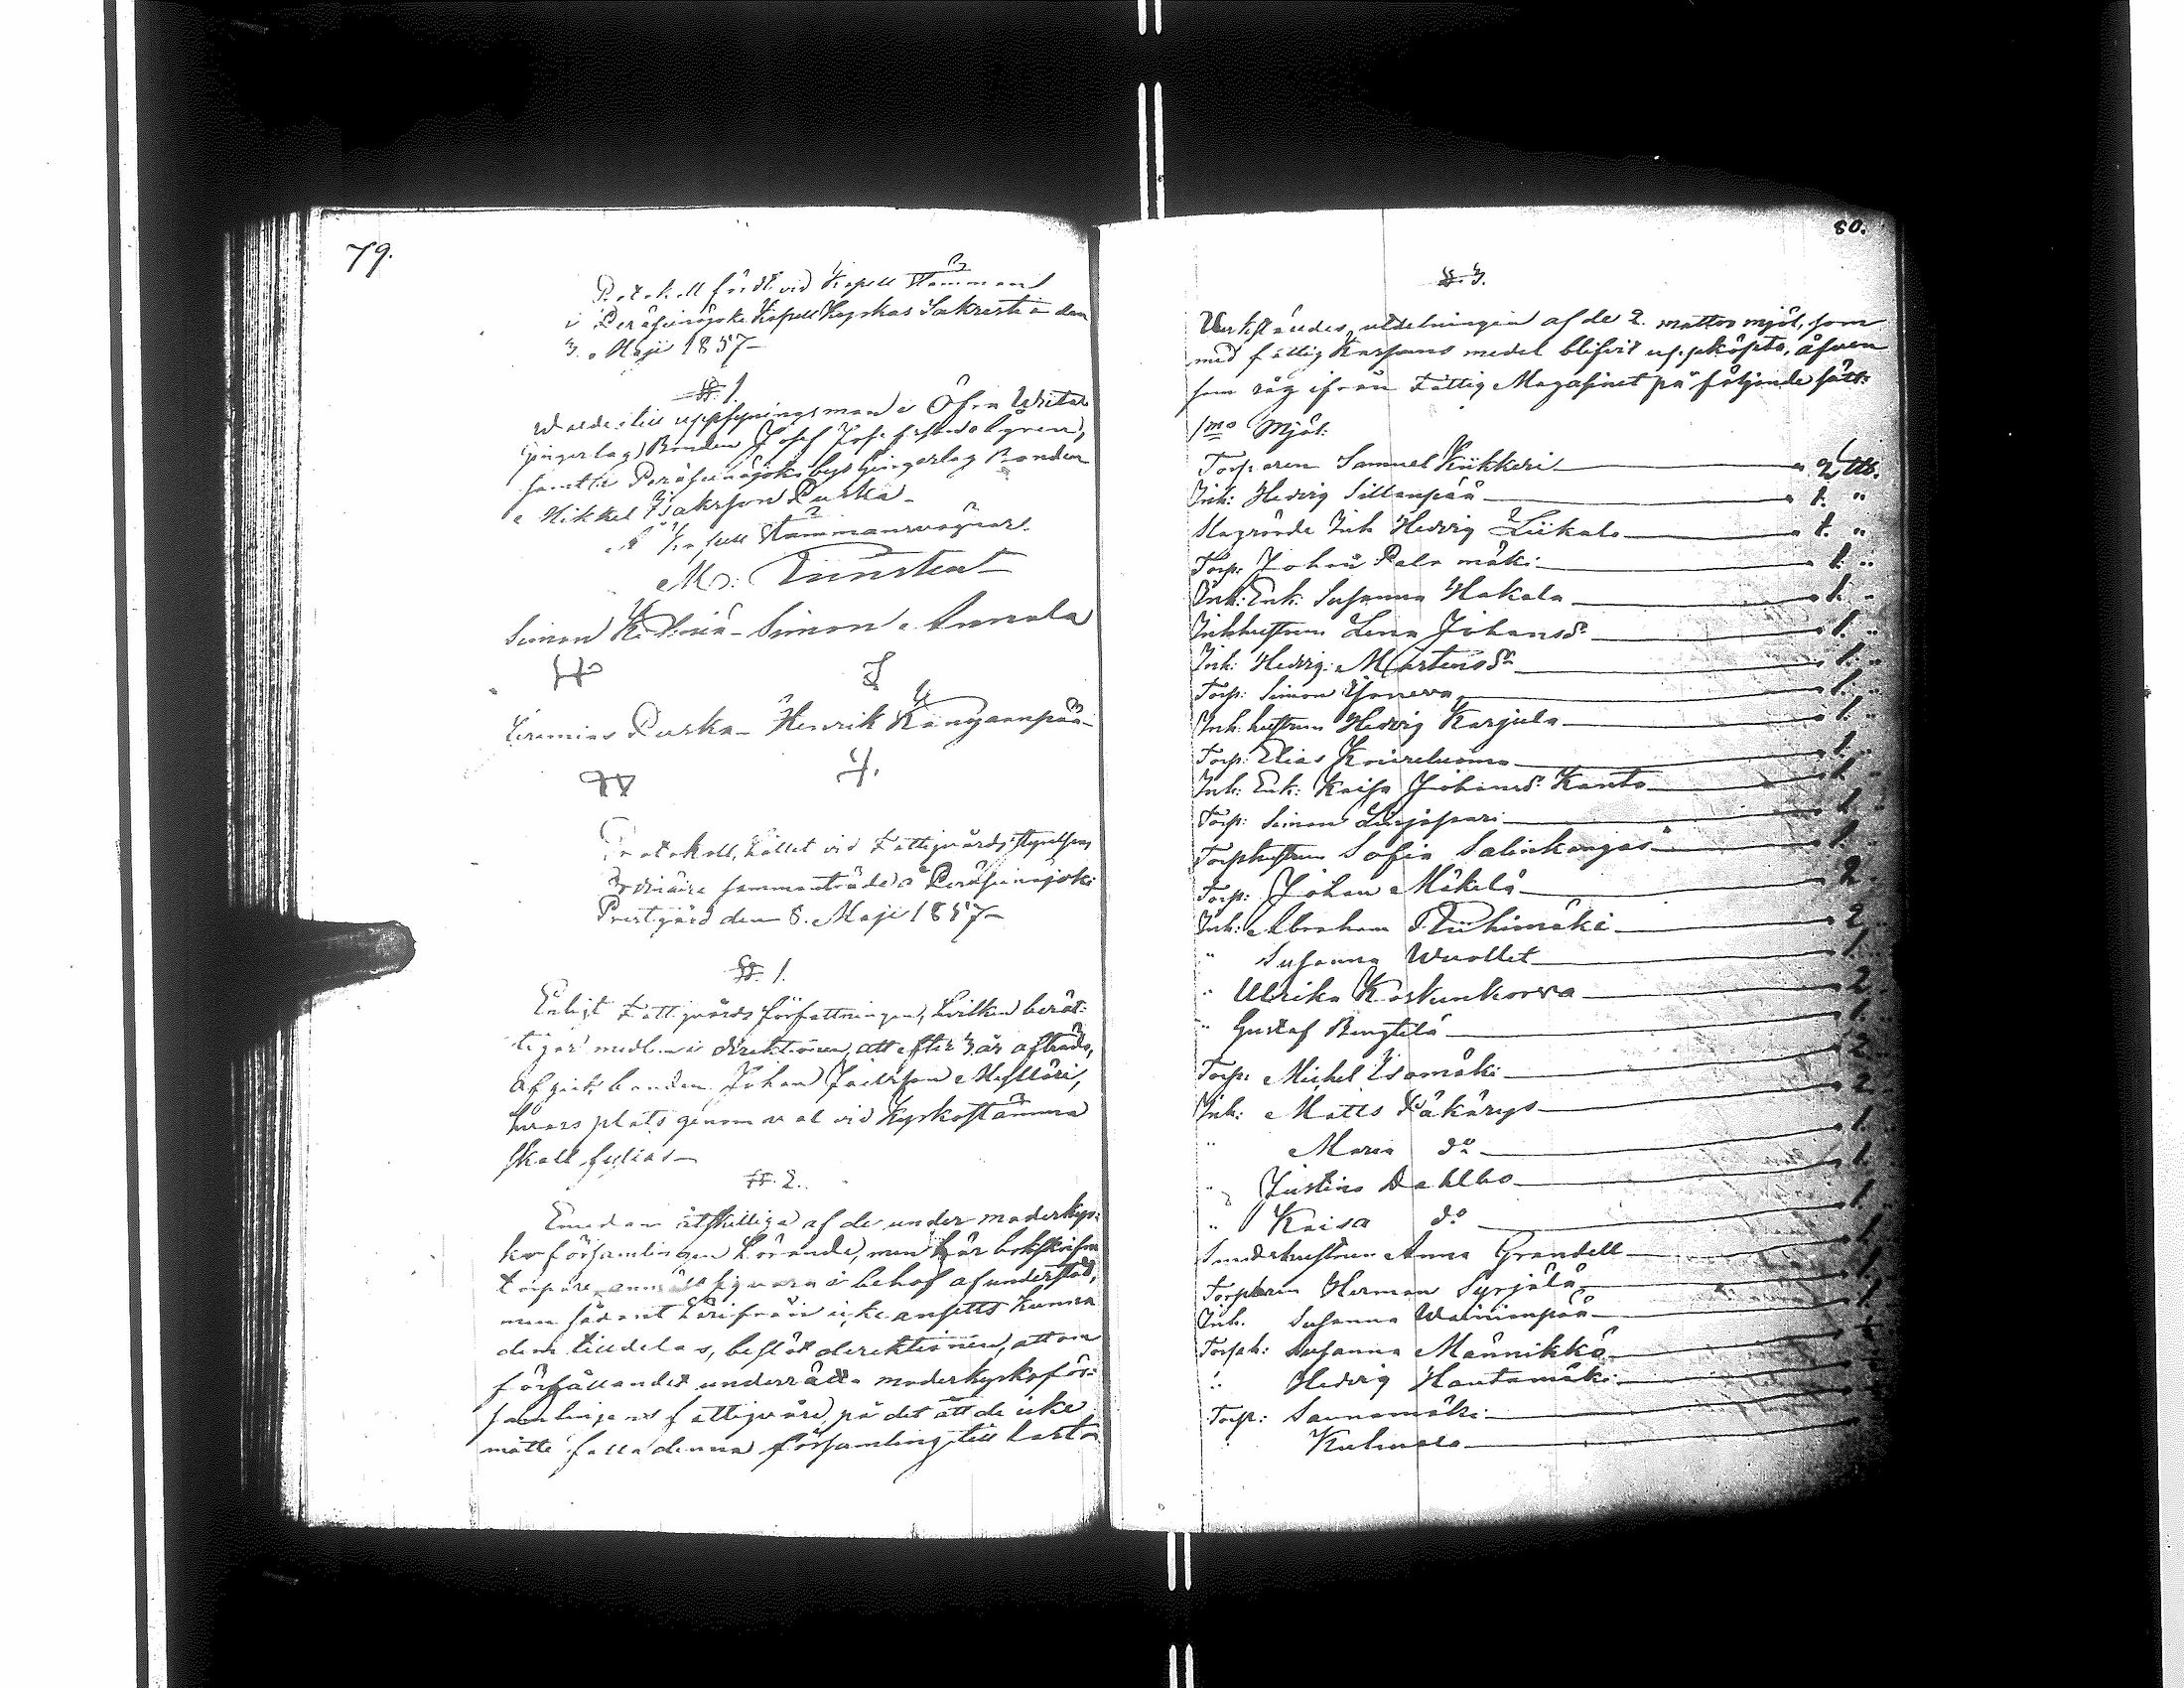 79.
Protokoll fördt vid Kapell Stämman
i Peräseinäjoki Kapell Kyrkas Sakristia den
3. Maji 1857
§. 1.
Waldes till uppsyningsman i Öfra Wita
jingerlag Bonden Josef Josefsson
samt i Peräseinäjoki bys hingerlag Bonden
Mikkel Isaksson Purka
På Kapell Stämmans vägnar
M. Tunstent
Simon Simon Annala
Jeremias Purka Henrik Kangaanpää
Protokoll, hållet vid Fattigvårdsstyrelsens
Ordinäira sammanträde å Peräseinäjoki
Prestgård den 8. Maji 1857
§. 1.
Enligt Fattigvårds författningen, hvilken berät-
tigar medlem i direktionen, att efter 3 år afträda,
afgick bonden Johan Myllöri,
hvars plats genom val vid Kyrkostämma
skall fyllas
§. 2.
Emedan åtskillige af de under moderkyr-
ko församlingen hörande, men här bokskrifne
torpare anmält sig vara i behof af understöd,
men sådant härifrån icke ansetts kunna
dem tilldelas, beslöt direktionen, att om
förhållandet underrätta moderkyrkoför-
samlingens fattigvård, på det att de icke
måtte falla denna församling till last
80.
§. 3.
Verkställdes utdelningen af de 2. mattor mjöl, som
med fattig Kassans medel blifvit uppköpta, äfven
som råg ifrån Fattig Magasinet på följande sätt:
1mo Mjöl:
Torparen Samuel Kiikkeri 2 ℔.
Inh: Hedvig Sillanpää 1. "
Inh Hedvig Liikala 1. "
Torp: Johan Palomäki 1. "
Inh: Enk: Susanna Hakala 1. "
Inhhustrun Lena Johansdr 1. "
Inh: Hedvig Mårtensdr 1. "
Torp: Simon Yoneva 1. "
Inh. hustrun Hedvig Karjula 1. "
Torp: Elias Koureluoma 1. "
Inh: Enk: Kaisa Johansdr Kanto 1 "
Torp: Simon 1. "
Torphustrun Sofia Salinkangas 1. "
Torp: Johan Mäkelä 2 "
Inh: Abraham Riihimäki 2 "
" Susanna Wuollet 1. "
" Ulrika Koskenkorva 2. "
" Gustaf Bengtilä 1. "
Torp: Michel Isomäki 2
Inh: Matts Käkärys 2
" Maria do 1.
" Justina Dahlbo 1.
" Kaisa do 1.
Smedhustrun Anna Grandell 1.
Torparen Herman Syrjälä 1.
Inh. Susanna Wainionpää 1.
Torph: Susanna Männikkö
" Hedvig Hautamäki
Torp: Saunamäki
" Kuhnala